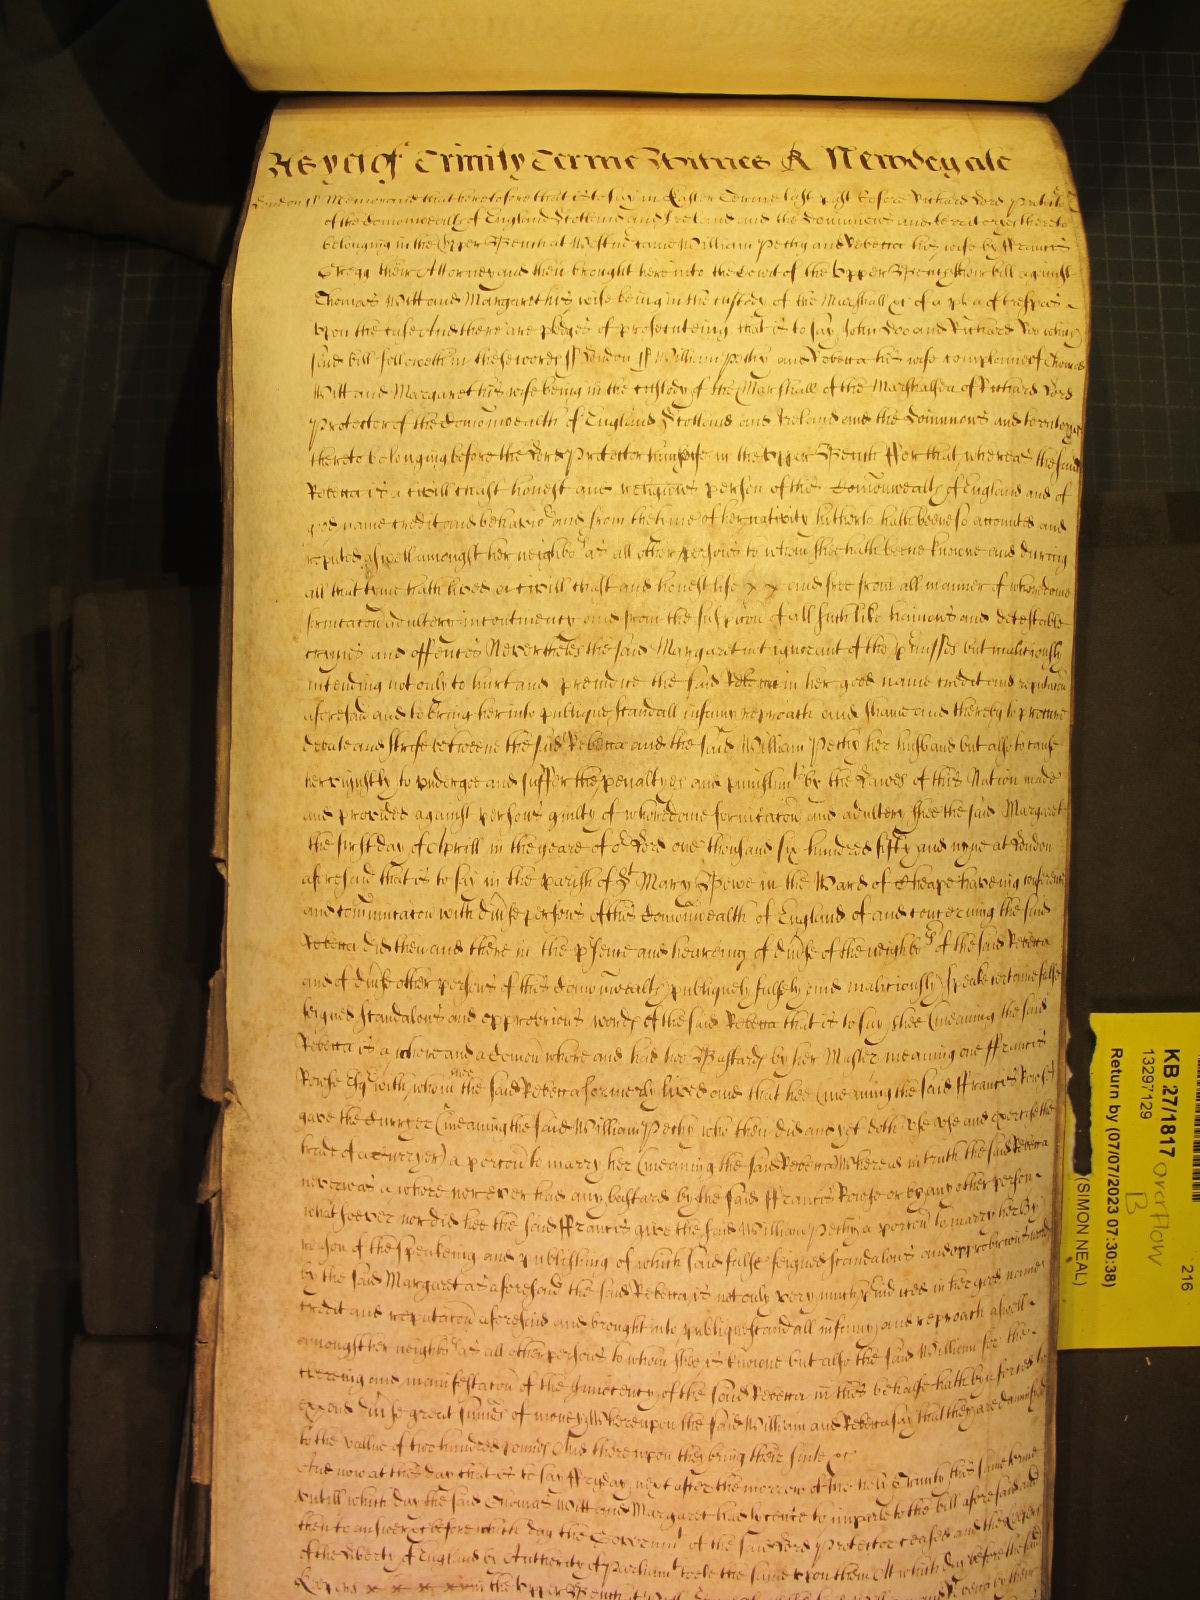 As yet of Trinity Terme Witnes R Newdegate
London ss Memorand that heretofore that is to say in Easter Terme last past before Richard Lord Protector
of the Comonwealth of England Scotland and Ireland and the Dominions and territories thereto
belonging in the Upper Bench at Westm came William Pechy and Rebecca his wife by Francis
Gregg their Attorney and then brought here into the Court of the Upper Bench their bill against
Thomas Witt and Margaret his wife being in the custody of the Marshall &c of a plea of trespas
upon the case And there are pledges of prosecuteing that is to say John Doo and Richard Roo which
said bill followeth in these words ss London ss William Pechy and Rebecca his wife complaine of Thomas
Witt and Margaret his wife being in the custody of the Marshall of the Marshalsea of Richard Lord
Protector of the Comonwealth of England Scotland and Ireland and the Dominions and territories
thereto belonging before the Lord Protector himselfe in the Upper Bench For that whereas the said
Rebecca is a civill chast honest and religious person of this Comonwealth of England and of
good name credit and behavior and from the time of her nativity hitherto hath beene so accounted and
reputed aswell amongst her neighbors as all other persons to whom shee hath beene knowne and during
all that tyme hath lived a civill chast and honest life x x and free from all manner of whoredome
fornicacon adultery incontinency and from the suspicon of all such like hainous and detestable
crymes and offences Nevertheles the said Margaret not ignorant of the premisses but maliciously
intending not only to hurt and prejudice the said Rebecca in her good name credit and reputacon
aforesaid and to bring her into publique scandall infamy reproach and shame and thereby to procure
debate and strife betweene the said Rebecca and the said William Pechy her husband but also to cause
her unjustly to undergoe and suffer the penaltyes and punishmts by the Lawes of this Nation made
and provided against persons guilty of whoredome fornicacon and adultery Shee the said Margaret
the first day of Aprill in the yeare of or Lord one thousand six hundred fifty and nyne at London
aforesaid that is to say in the parish of St Mary Bowe in the Ward of Cheape haveing conference
and comunicacon with divse persons of this Comonwealth of England of and concerning the said
Rebecca did then and there in the psence and heareing of divse of the neighbors of the said Rebecca
and of divse other persons of this Comonwealth publiquely falsely and maliciously speake certaine false
feigned scandalous and opprobrious words of the said Rebecca that is to say shee (meaning the said
Rebecca is a whore and a comon whore and had two Bastards by her Master meaning one Francis
Rowse Esq with whom shee the said Rebecca formerly lived and that hee (meaning the said Francis Rowse)
gave the Curryer (meaning the said William Pechy who then did and yet doth use and exercise the
trade of a Curryer) a porcon to marry her (meaning the said Rebecca) Whereas in truth the said Rebecca
never was a whore nor ever had any bastard by the said Francis Rowse or by any other person
whatsoever nor did hee the said Francis give the said William Pechy a porcon to marry her By
reason of the speakeing and publishing of which said false feigned scandalous and opprobrious words
by the said Margaret as aforesaid the said Rebecca is not only very much pjudiced in her good name
credit and reputacon aforesaid and brought into publique scandall infamy and reproach aswell
amongst her neighbors as all other persons to whom shee is knowne but also the said William for the
cleering and manifestacon of the Innocency of the said Rebecca in this behalfe hath byn forced to
expend divse great sumes of money Whereupon the said William and Rebecca say that they are damnified
to the vallue of two hundred pounds And thereupon they bring their suite &c
And now at this day that is to say Fryday next after the morrow of the holy Trinity this same terme
untill which day the said Thomas Witt and Margaret had lycence to imparle to the bill aforesaid and
then to answere &c before which day the Governmt of the said Lord Protector ceased and the Keepers
of the Liberty of England by Authority of Parliamt tooke the same upon them At which day before the said
Keepers x x x x in the Upper Bench at
KB 27/1817 overflow B
13297129
216
Return by (07/07/2023 07:30:38)
(SIMON NEAL)